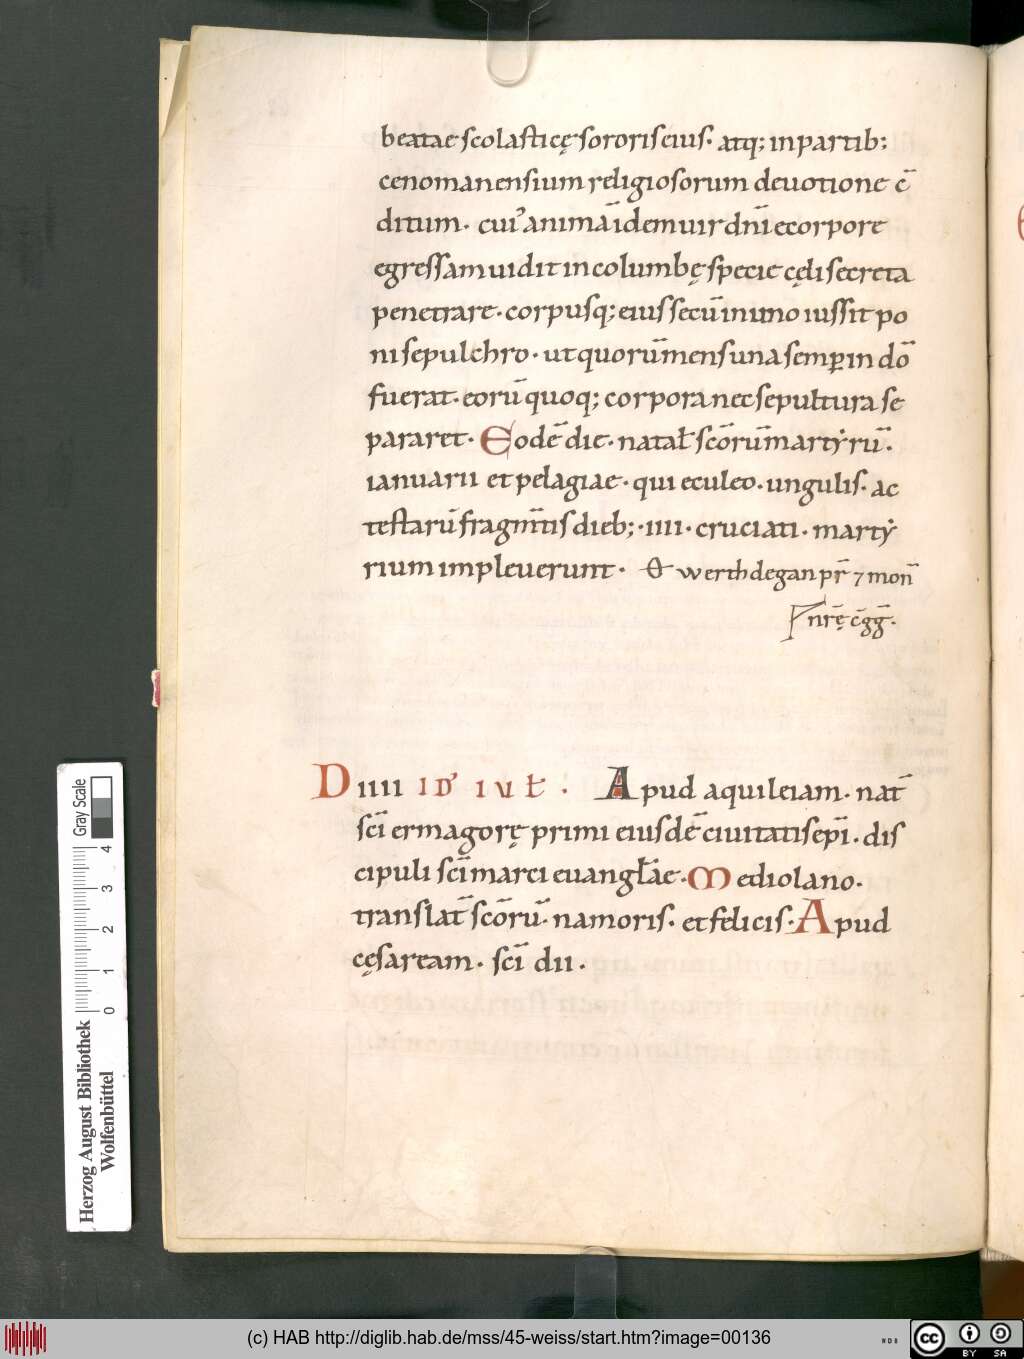 beatae scolasticę sororis eius· atq; in partib;
cenomanensium religiosorum deuotione c̄
ditum· cui᾿ animā idem uir dn̄i e corpore
egressam uidit in columbę specie cęli secreta
penetrare· corpusq; eius secū in uno iussit po
ni sepulchro· ut quorū mens una semꝑ in dō
fuerat· eorū quoq; corpora nec sepultura se
pararet· Eodē die· natał scōrū martẏrū·
ianuarii et pelagiae· qui eculeo· ungulis· ac
testarū fragm̄tis dieb;· iiii· cruciati· martẏ
rium impleuerunt· Θ werthdegan pr̄ ⁊ mon̄
nr̄ę c̄gḡ·
D iiii ID᾿ IUł· Apud aquileiam· nat̄
sc̄i ermagorę primi eiusdē ciuitatis ep̄i· dis
cipuli sc̄i marci euangłāe· Mediolano·
translat̄ scōrū· namoris· et felicis· Apud
cęsaream· sc̄i dii·
Herzog August Bibliothek
Wolfenbüttel
0 1 2 3 4
Gray Scale
(c) HAB http://diglib.hab.de/mss/45-weiss/start.htm?image=00136
cc BY SA